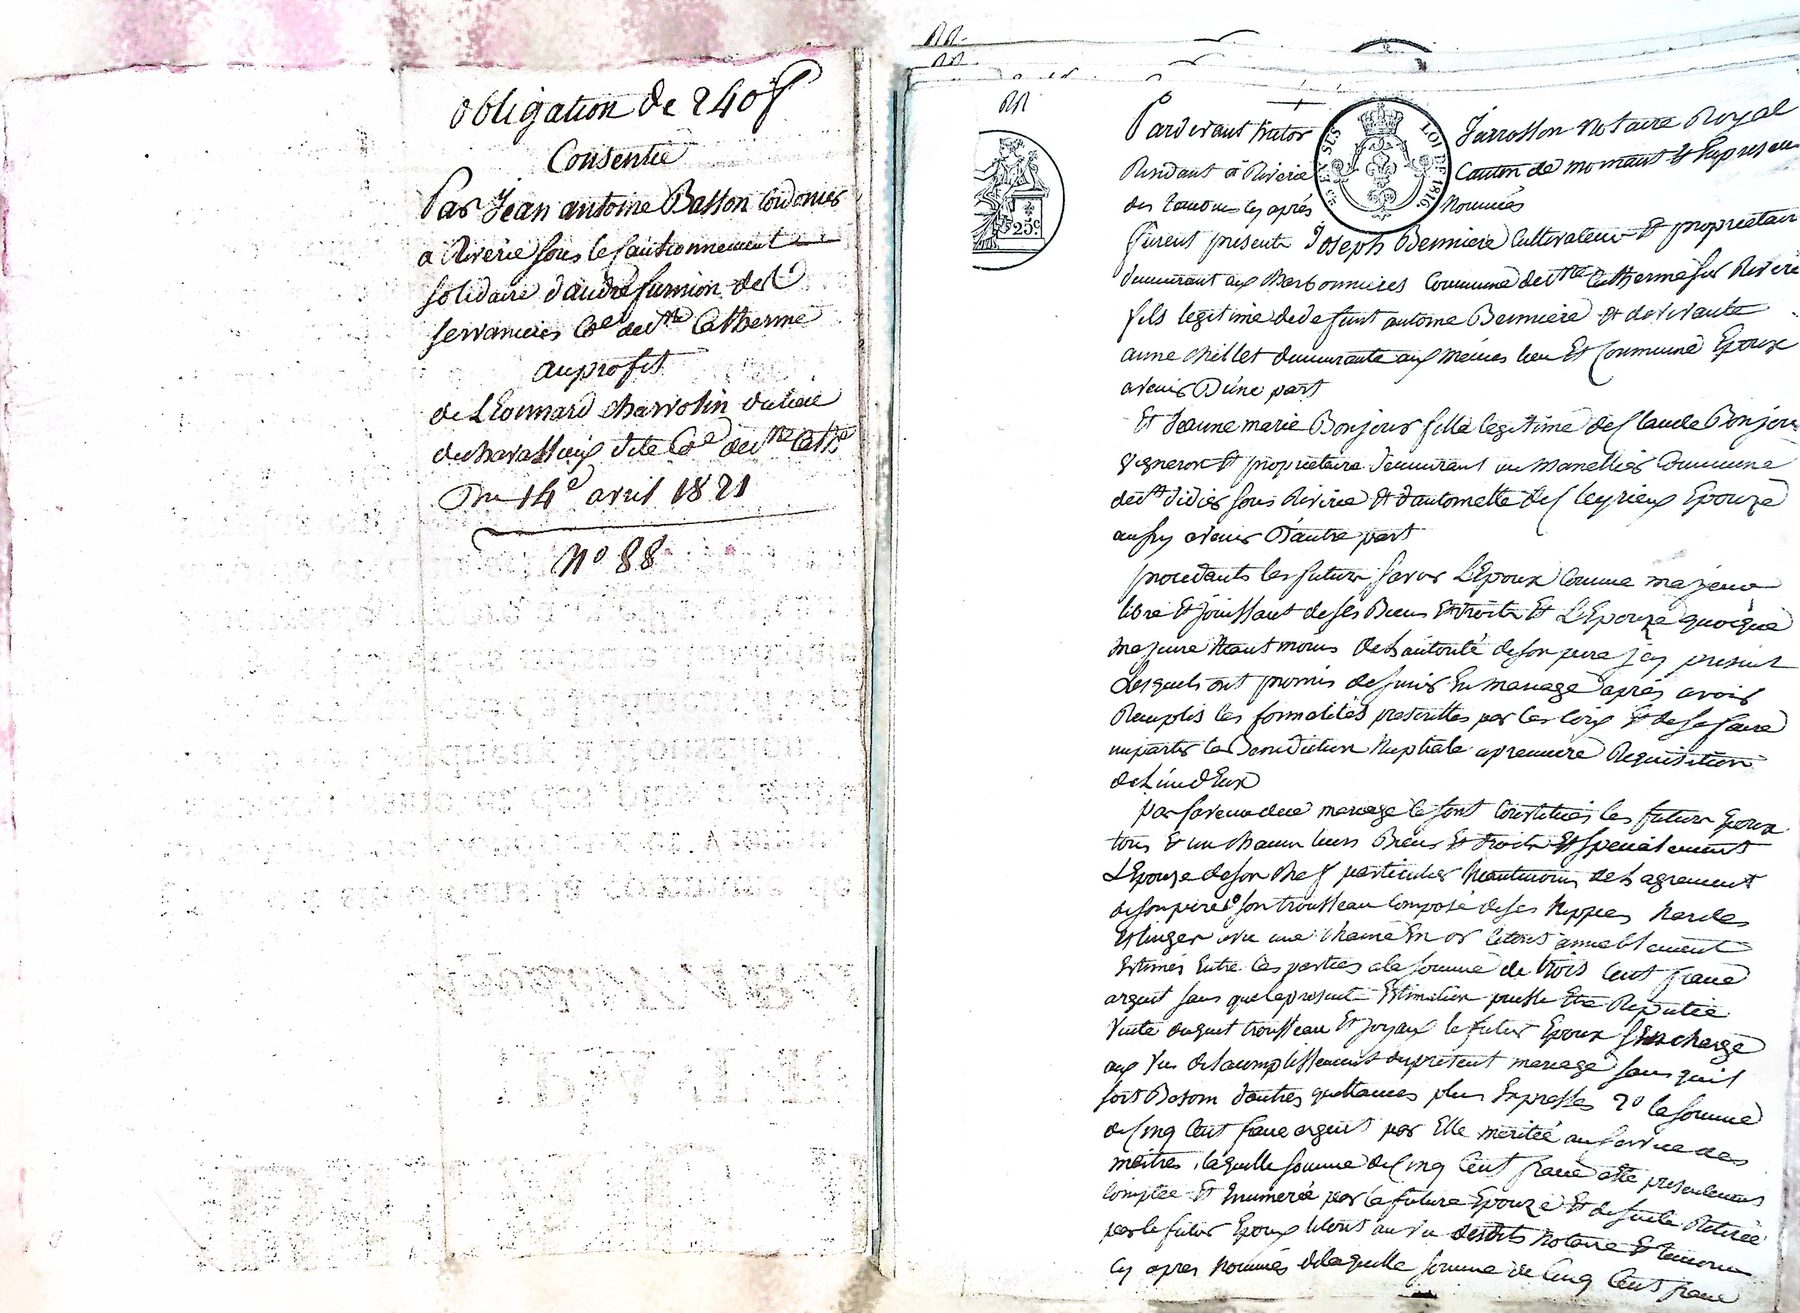 obligation de 240f
Consentie
Par Jean antoine Basson Cordonier
a Riverie sous le Cautionnement
solidaire d'andré furnion des
servancies Cne de Ste Catherine
au profit
de Léonnard charvolin du lieu
de chavassieux dite Cne de Ste Cathe
Du 14e avril 1821
No 88
Pardevant Victor Jarrosson Notaire Royal
Residant à Riverie Canton de mornant Et En presence
des temoins cy après Nommés
furent presents Joseph Bernniere Cultivateur Et proprietaire
demeurant aux Barbonnieres Commune de Ste Catherine sur Riverie
fils legitime de defunt antoine Bernniere Et de vivante
anne chillet demeurante aux mêmes lieu Et Commune Epoux
avenir D'une part
Et Jeanne marie Bonjour fille legitime de Claude Bonjour
vigneron Et proprietaire demeurant au Commune
de St Didier sous Riverie Et d'antoinette des Epouze
aussy avenir D'autre part
procedants les futurs savoir L'Epoux Comme majeur
libre Et jouissant de ses Biens Et droits Et L'Epouze quoique
majeure Neantmoins de L'autorité de son pere icy present
Lesquels ont promis de s'unir En mariage après avoir
Remplis les formalités prescrittes par les loix Et de se faire
impartir la Benediction Nuptiale a premiere Requisition
de L'un d'Eux
par faveur du mariage se sont Constitués les futurs Epoux
tous Et un chacun leurs Biens Et droits Et specialement
L'Epouze de son chef particulier Neantmoins de L'agrement
de son pere 1o son trousseau Composé de ses Nippes hardes
Et linges avec une chaine En or le tout amiablement
Estimés Entre les parties a la somme de trois Cent francs
argent sans que la presente Estimation puisse Etre Reputée
vente duquel trousseau Et joyaux le futur Epoux s'En charge
aux vu de L'acomplissement du present mariage sans qu'il
soit Besoin d'autres quittances plus Expresses 2o la somme
de Cinq Cent francs argent par Elle meritée au service des
maitres, laquelle somme de Cinq Cent francs a été presentement
Comptée Et Enumerée par la future Epouze Et de suite Retirée
par le futur Epoux le tout au vu desdits Notaire Et temoins
cy apres Nommés de laquelle somme de Cinq Cent francs
25c
EN SUS
LOI DE 1816